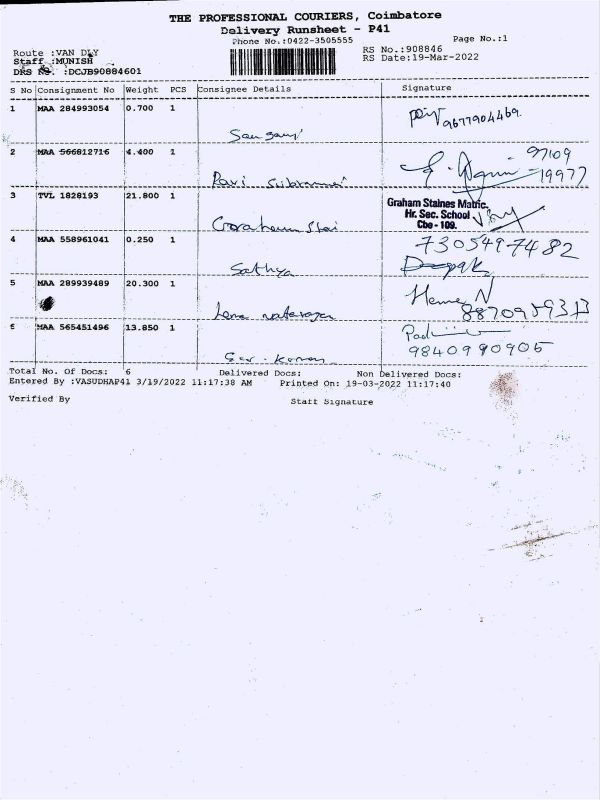 THE PROFESSIONAL COURIERS, Coimbatore
Delivery Runsheet - P41
Phone No.:0422-3505555
Page No.:1
Route :VAN DLY
RS No.:908846
Staff :MUNISH
RS Date:19-Mar-2022
DRS No. :DCJB90884601
S No Consignment No Weight PCS Consignee Details Signature
1 MAA 284993054 0.700 1
9677904469
2 MAA 566812716 4.400 1
97109
19977
Ravi
3 TVL 1828193 21.800 1
Graham Staines Matric.
Hr. Sec. School
Cbe - 109.
4 MAA 558961041 0.250 1
7305497482
Sathya
Deepak
5 MAA 289939489 20.300 1
Hema N
8870959313
Lena
6 MAA 565451496 13.850 1
9840990905
Total No. Of Docs: 6 Delivered Docs: Non Delivered Docs:
Entered By :VASUDHAP41 3/19/2022 11:17:38 AM Printed On: 19-03-2022 11:17:40
Verified By Staff Signature